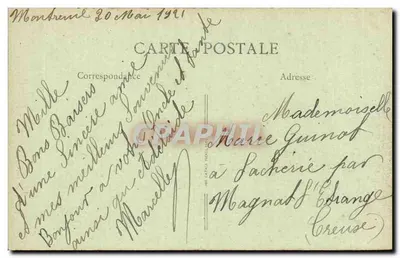 Montreuil 20 Mai 1921
CARTE POSTALE
Correspondance
Adresse
Mille
Bons Baisers
d'une Sincère amie
et mes meilleurs Souvenirs
Bonjour a votre Oncle et tante
ainsi qu'
Marcelle
Mademoiselle
Marie Guinot
a Lacherie par
Magnat l'Etrange
(Creuse)